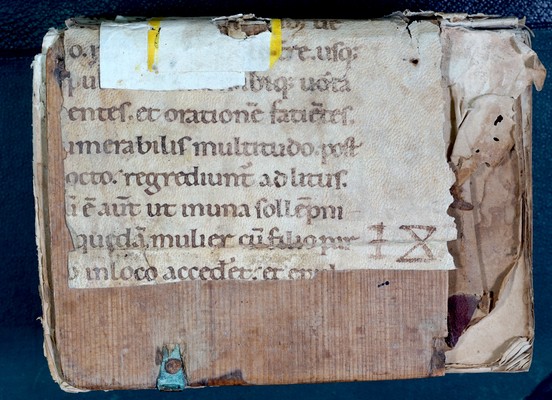 usq;
ibiq; uota
entes. et orationē faciētes.
umerabilis multitudo. post
octo. regrediunt ad litus.
ē aūt ut in una sollēpni
quedā mulier cū filio par
IX
in loco accederet. et